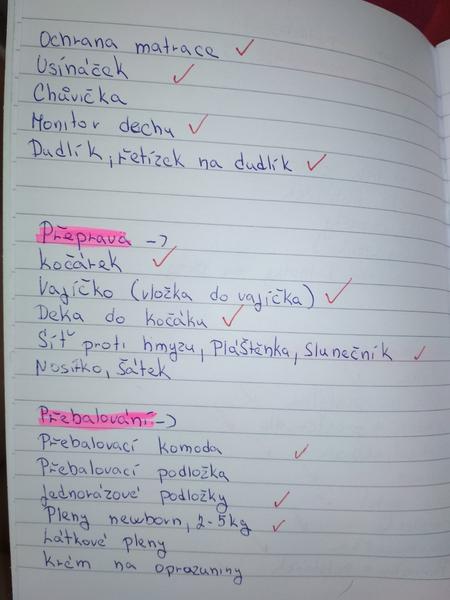 Ochrana matrace ✓
Usínáček ✓
Chůvička
Monitor dechu ✓
Dudlík, řetízek na dudlík ✓
Přeprava ->
kočárek ✓
Vajíčko (vložka do vajíčka) ✓
Deka do kočáku ✓
Síť proti hmyzu, Pláštěnka, Slunečník ✓
Nosítko, Šátek
Přebalování ->
Přebalovací komoda ✓
Přebalovací podložka
Jednorázové podložky ✓
Pleny newborn, 2-5kg ✓
Látkové pleny
krém na opruzuniny